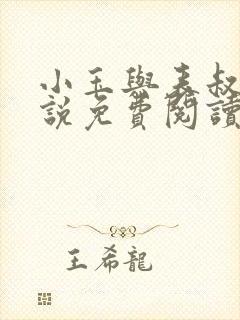 小玉與表叔
說免費閱讀
王希龍